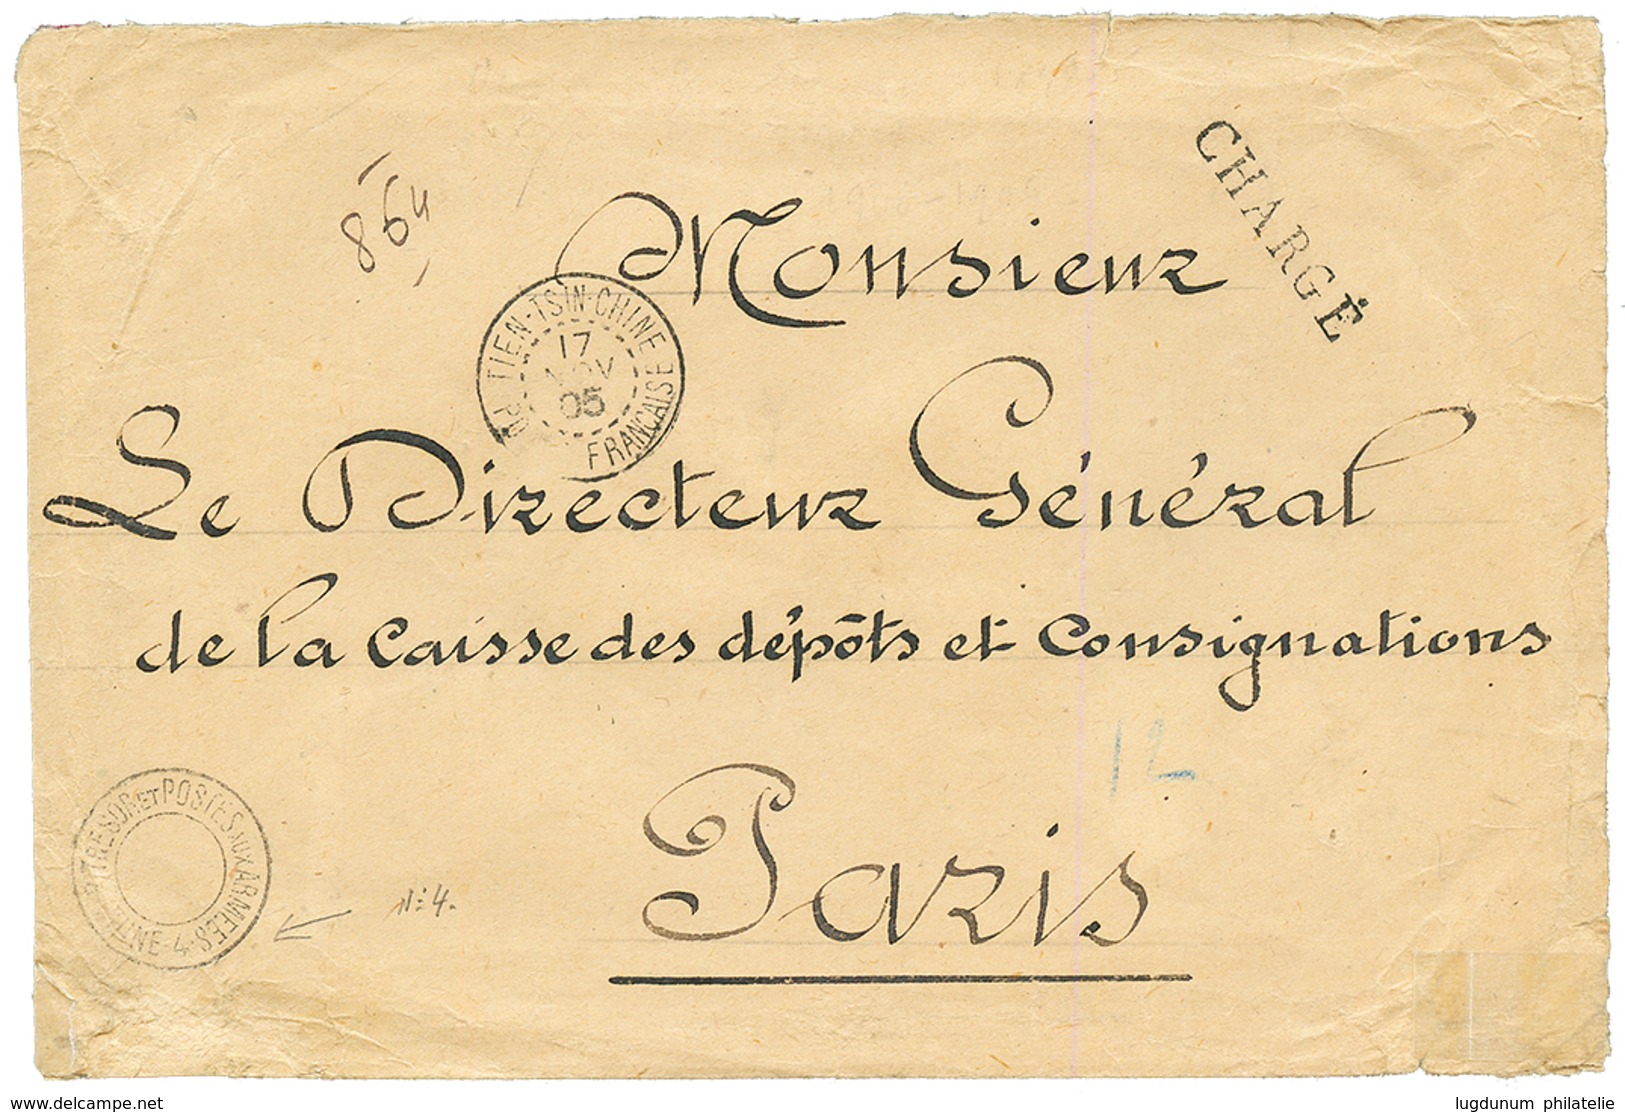 CHARGÉ
864
Monsieur
TIEN-TSIN-CHINE
17
NOV
05
FRANÇAISE
Le Directeur Général
de la Caisse des dépôts et Consignations
12
Paris
TRESOR ET POSTES AUX ARMEES
CHINE 4
N: 4.
www.delcampe.net
lugdunum philatelie